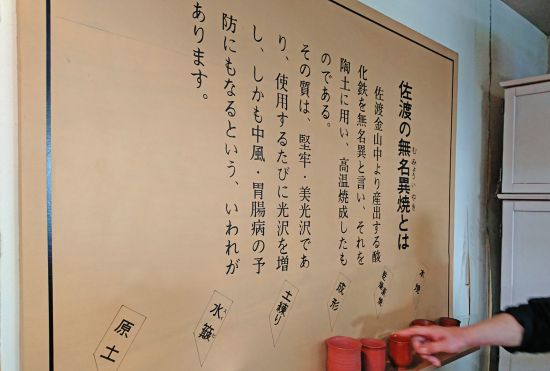 佐渡の無名異焼とは
むみょういやき
佐渡金山中より産出する酸
化鉄を無名異と言い、それを
陶土に用い、高温焼成したも
のである。
その質は、堅牢・美光沢であ
り、使用するたびに光沢を増
し、しかも中風・胃腸病の予
防にもなるという、いわれが
あります。
本焼
成形
土練り
水簸
原土